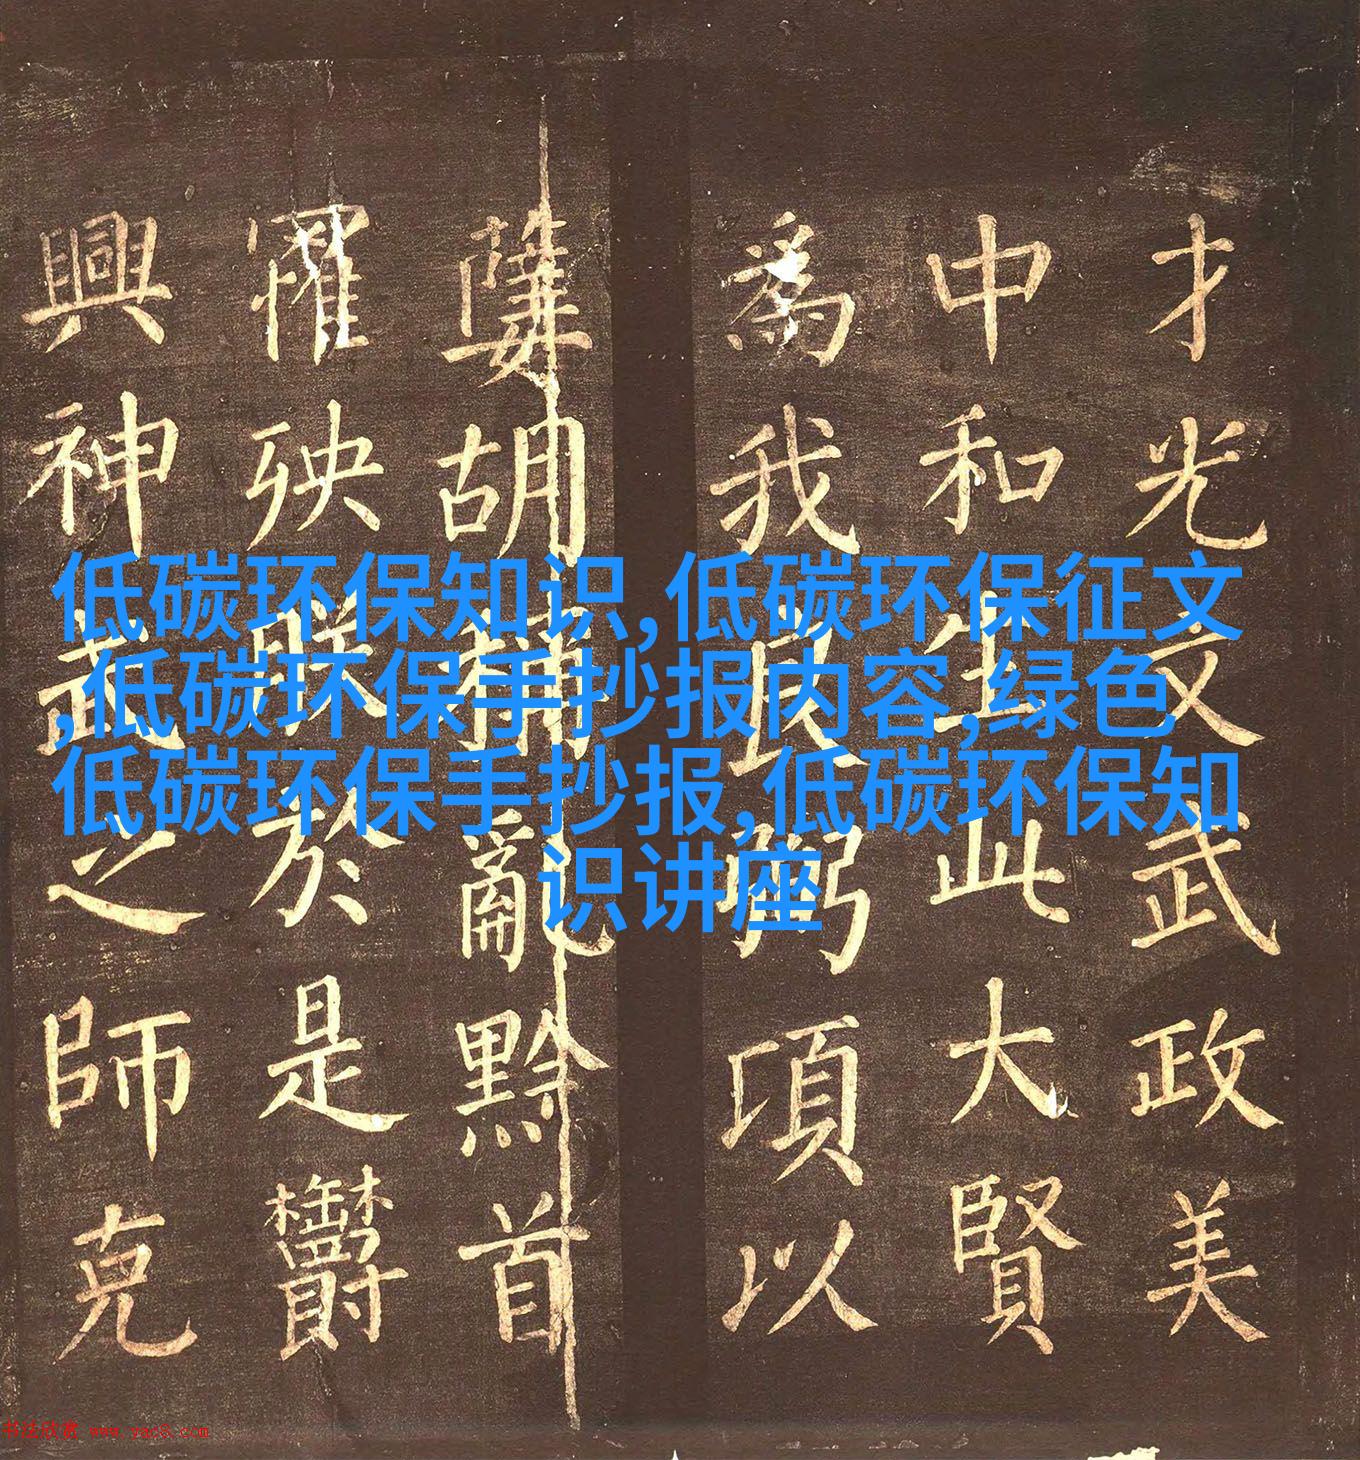 低碳环保知识,低碳环保征文
,低碳环保手抄报内容,绿色
低碳环保手抄报,低碳环保知
识讲座
才光文武政美
中和生此大賢
為我良弼項以
胡 亂黔首
罹殃 於是
興神武之師克
书法欣赏 www.yac8.com